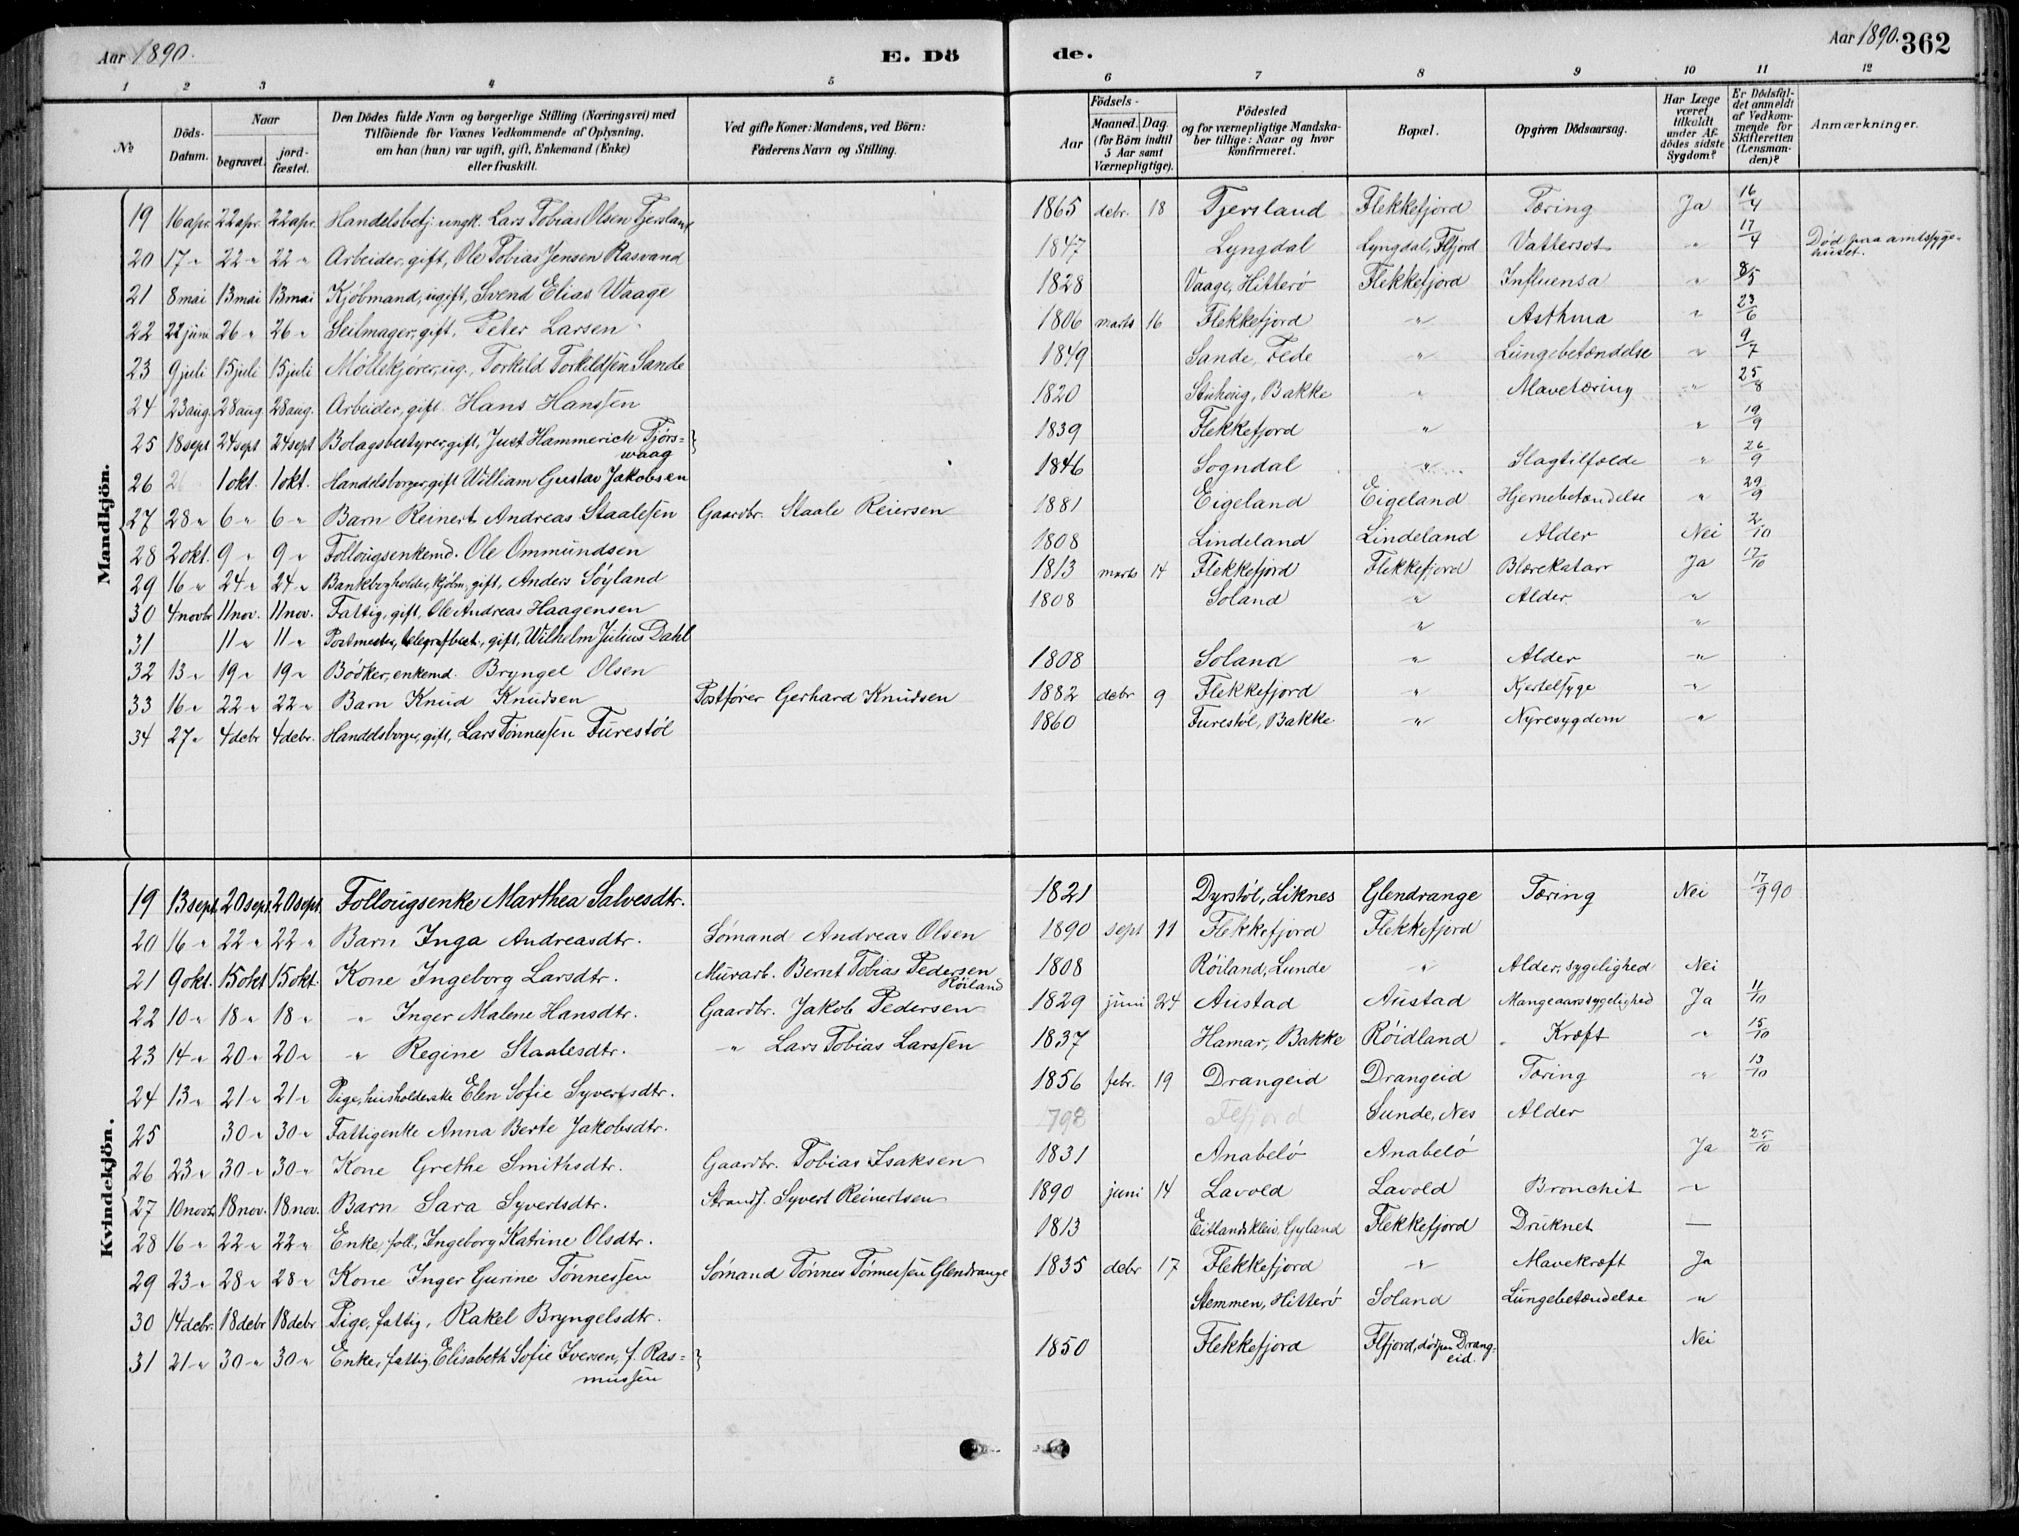 Aar 1890. E. Dö de. Aar 1890. 362
1 2 3 4 5 6 7 8 9 10 11 12
No Döds-Datum. Naar begravet. jord-fæstet. Den Dödes fulde Navn og borgerlige Stilling (Næringsvei) med Tilföiende for Voxnes Vedkommende af Oplysning, om han (hun) var ugift, gift, Enkemand (Enke) eller fraskilt. Ved gifte Koner: Mandens, ved Börn: Faderens Navn og Stilling. Födsels- Aar Maaned. Dag. (for Börn indtil 5 Aar samt Værnepligtige). Födested og for værnepligtige Mandskaber tillige: Naar og hvor konfirmeret. Bopæl. Opgiven Dödsaarsag. Har Læge været tilkaldt under Afdödes sidste Sygdom? Er Dödsfaldet anmeldt af Vedkommende for Skifteretten (Lensmanden)? Anmærkninger.
Mandkjön.
19 16 apr. 22 apr. 22 apr. Handelsbetj. ungk. Lars Tobias Olsen Tjersland 1865 debr. 18 Tjersland Flekkefjord Tæring Ja 16/4
20 17 " 22 " 22 " Arbeider, gift, Ole Tobias Jensen Rasvand 1847 Lyngdal Lyngdal, Flfjord Vattersot " 17/4 Död paa amtssygehuset.
21 8 mai 13 mai 13 mai Kjöbmand, ugift, Svend Elias Waage 1828 Vaage, Hitterö Flekkefjord Influensa " 8/5
22 22 juni 26 " 26 " Seilmager, gift, Peter Larsen 1806 marts 16 Flekkefjord " Asthma " 23/6
23 9 juli 15 juli 15 juli Möllekjörer, ug., Torkild Torkildsen Sande 1849 Sande, Fede " Lungebetændelse " 9/7
24 23 aug. 28 aug. 28 aug. Arbeider, gift Hans Hanssen 1820 Bakke " Mavetæring " 25/8
25 18 sept 24 sept 24 sept Bolagsbestyrer, gift, Just Hammerich Tjörs=
waag 1839 Flekkefjord " " 19/9
26 1 okt. 1 okt. Handelsborger, gift William Gustav Jakobsen 1846 Sogndal " Slagtilfælde " 26/9
27 28 " 6 " 6 " Barn Reinert Andreas Staalesen Gaardbr. Staale Reiersen 1881 Eigeland Eigeland Hjernebetændelse " 29/9
28 2 okt. 9 " 9 " Follougsenkemd. Ole Ommundsen 1808 Lindeland Lindeland Alder Nei 2/10
29 16 " 24 " 24 " Bankbogholder, kjöbm., gift, Anders Söyland 1813 marts 14 Flekkefjord Flekkefjord Blærekatarr Ja 17/10
30 4 novbr 11 nov. 11 nov. Fattig, gift, Ole Andreas Haagensen 1808 Soland " Alder "
31 11 " 11 " Postmester, telegrafbest., gift, Wilhelm Julius Dahl " "
32 13 " 19 " 19 " Bödker, enkemd. Bryngel Olsen 1808 Soland " Alder "
33 16 " 22 " 22 " Barn Knud Knudsen Postförer Gerhard Knudsen 1882 debr 9 Flekkefjord " Kjertelsyge "
34 27 " 4 debr 4 debr. Handelsborger, gift, Lars Tönnessen Furestöl 1860 Furestöl, Bakke " Nyresygdom "
Kvindekjön.
19 13 sept. 20 sept. 20 sept. Follougsenke Marthea Salvesdtr. 1821 Dyrstöl, Liknes Glendrange Tæring Nei 17/9 90
20 16 " 22 " 22 " Barn Inga Andreasdtr. Sömand Andreas Olsen 1890 sept 11 Flekkefjord Flekkefjord
21 9 okt. 15 okt 15 okt. Kone Ingeborg Larsdtr. Murarb. Bernt Tobias Pedersen
Röiland 1808 Röiland, Lunde " Alder, sygelighed Nei
22 10 " 18 " 18 " " Inger Malene Hansdtr. Gaardbr. Jakob Pedersen 1829 juni 24 Austad Austad Mangeaars sygelighed Ja 11/10
23 14 " 20 " 20 " " Regine Staalesdtr. " Lars Tobias Larssen 1837 Hamar, Bakke Röidland Kræft " 15/10
24 13 " 21 " 21 " Pige, husholderske Elen Sofie Syvertsdtr. 1856 febr. 19 Drangeid Drangeid Tæring " 13/10
25 30 " 30 " Fattigenke Anna Berte Jakobsdtr. 798 Flfjord Sunde, Nes Alder
26 23 " 30 " 30 " Kone Grethe Smithsdtr. Gaardbr. Tobias Isaksen 1831 Anabelö Anabelö Ja 25/10
27 10 novb. 18 nov. 18 nov. Barn Sara Syvertsdtr. Strands. Syvert Reinertsen 1890 juni 14 Lavold Lavold Bronchit "
28 16 " 22 " 22 " Enke foll., Ingeborg Katrine Olsdtr. 1813 Eitlandskleiv, Gyland Flekkefjord Druknet —
29 23 " 28 " 28 " Kone Inger Gurine Tönnessen Sömand Tönnes Tönnessen Glendrange 1835 debr 17 Flekkefjord " Mavekræft Ja
30 14 debr. 18 debr 18 debr Pige, fattig, Rakel Bryngelsdtr. Stemmen, Hitterö Soland Lungebetændelse "
31 21 " 30 " 30 " Enke, fattig, Elisabeth Sofie Iversen, f. Ras=
mussen 1850 Flekkefjord Flfjord, död paa Drang-
eid. Nei